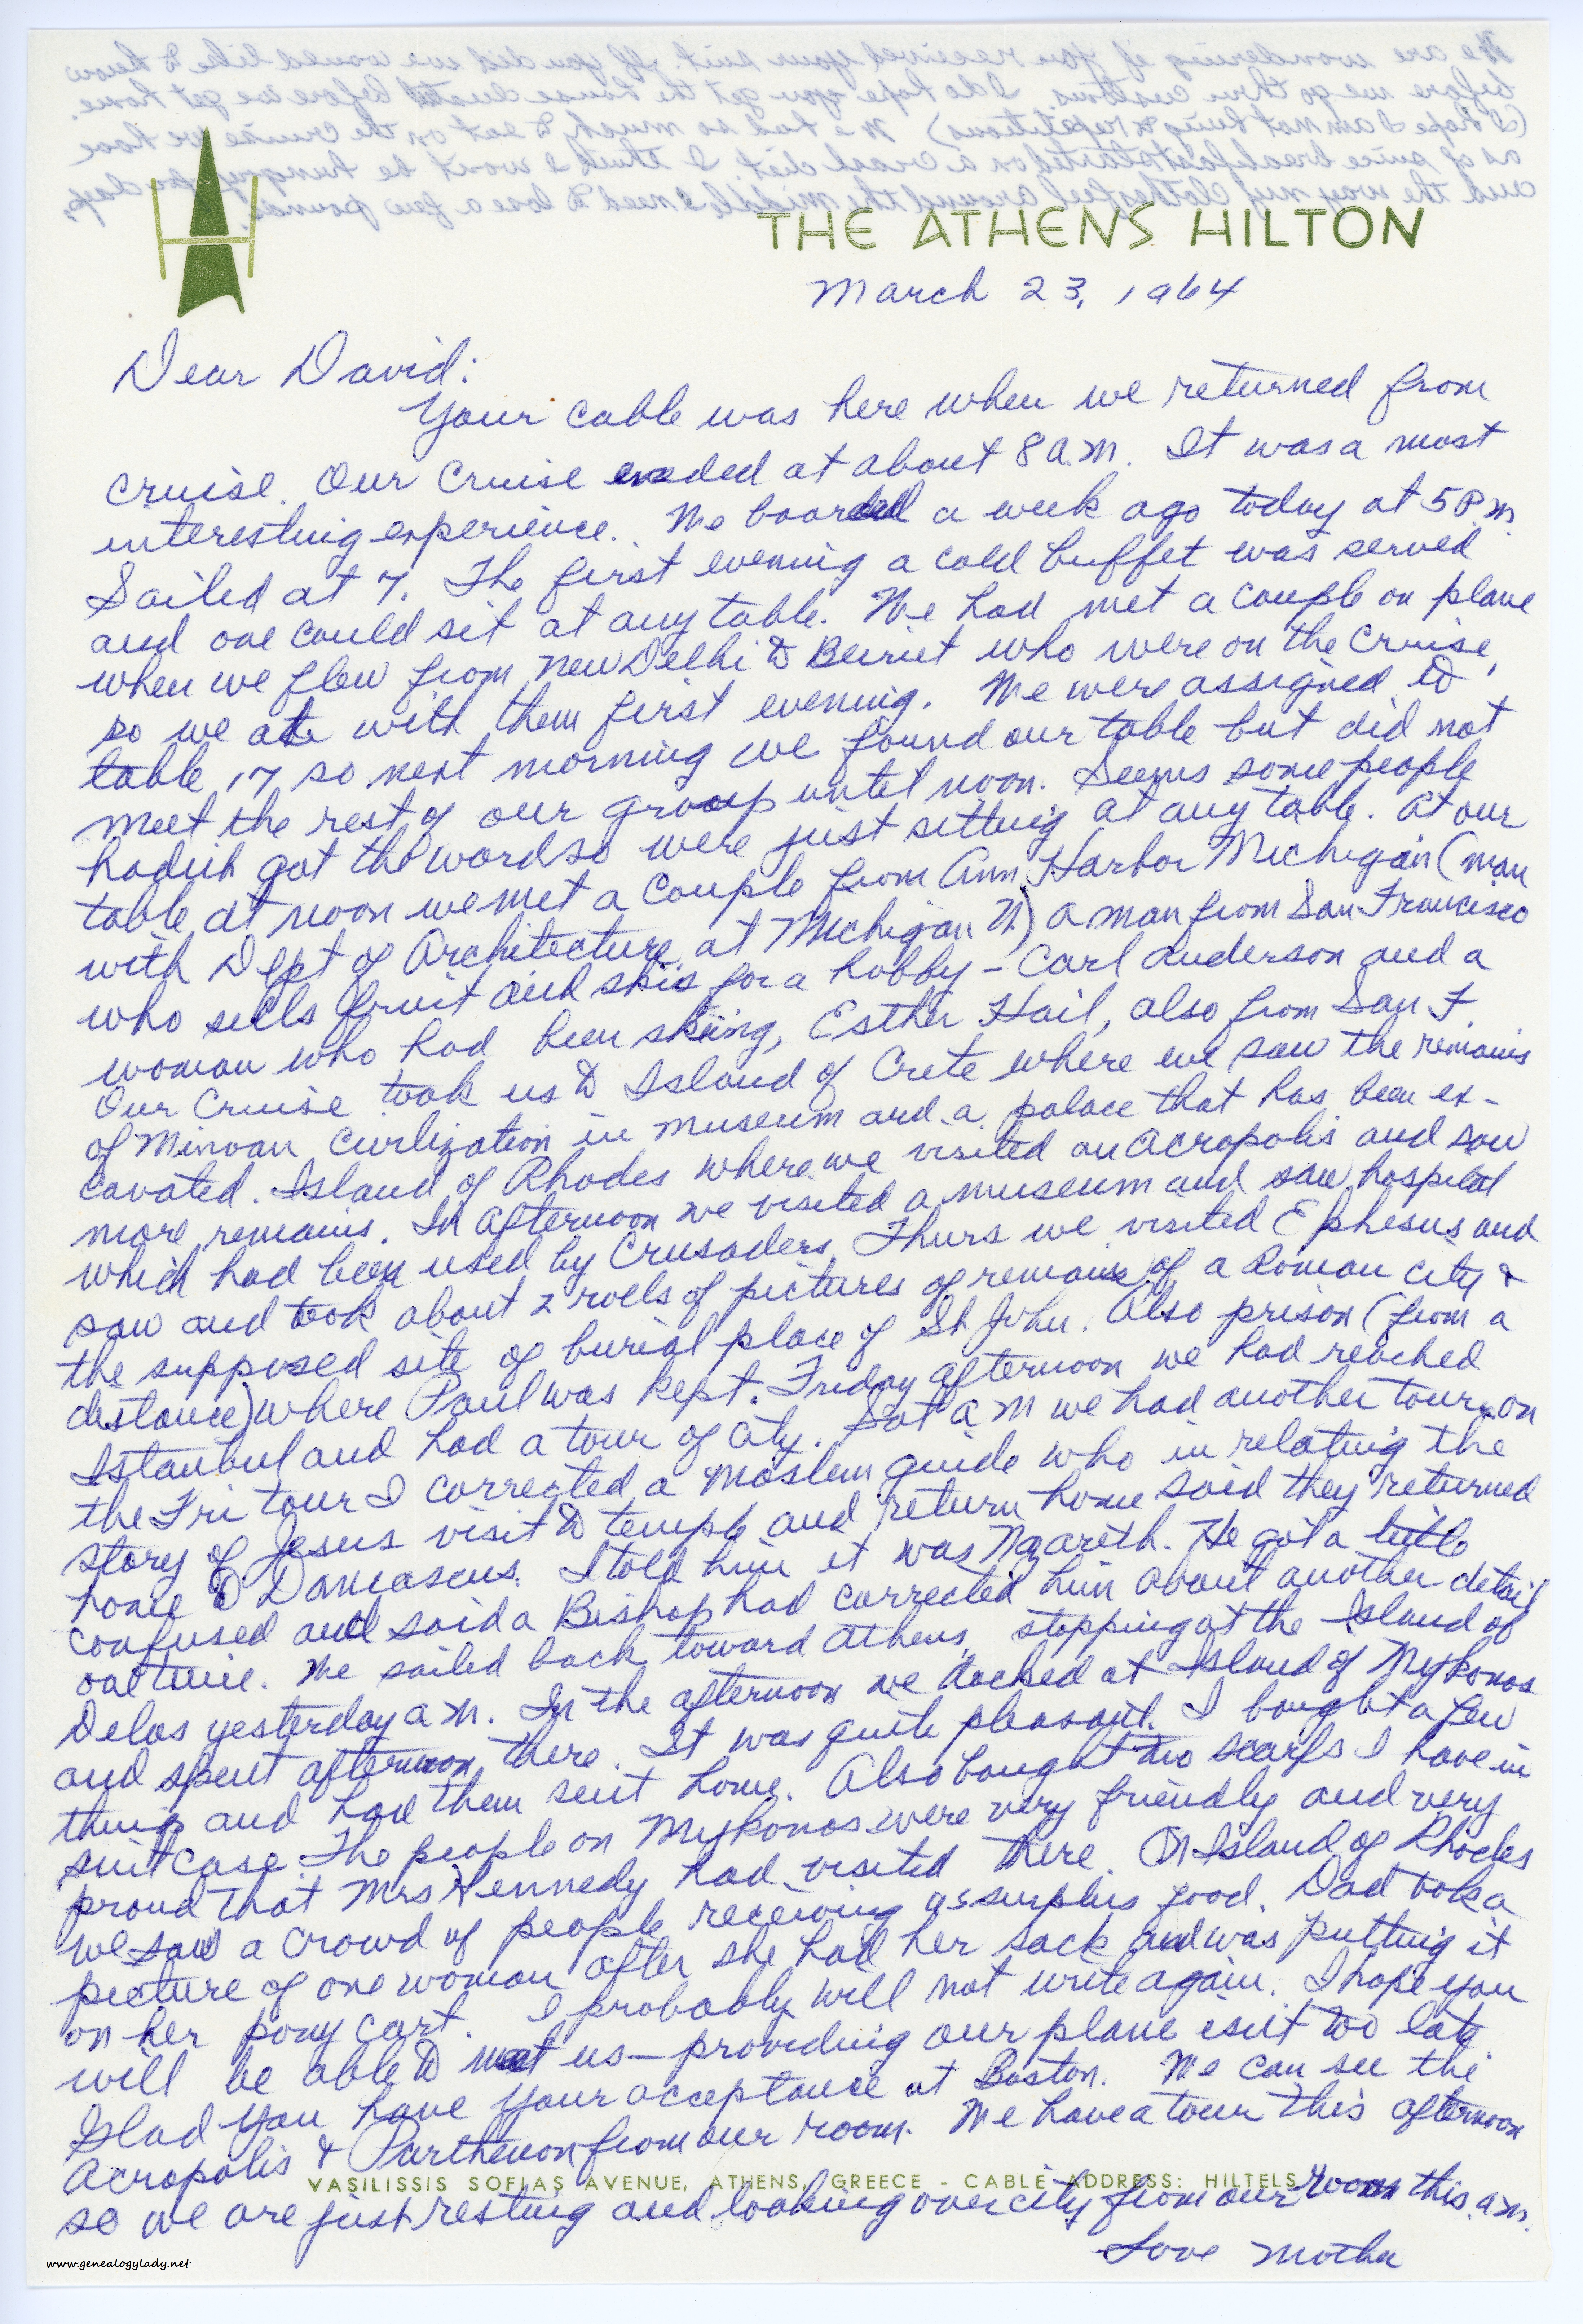 THE ATHENS HILTON
March 23, 1964
Dear David:
Your cable was here when we returned from
cruise. Our Cruise ended at about 8 a.m. It was a most
interesting experience. We boarded a week ago today at 5 P.M.
Sailed at 7. The first evening a cold buffet was served
and one could sit at any table. We had met a couple on plane
when we flew from New Delhi to Beirut who were on the Cruise,
so we ate with them first evening. We were assigned to
table 17 so next morning we found our table but did not
meet the rest of our group until noon. Seems some people
hadn't got the word so were just sitting at any table. At our
table at noon we met a couple from Ann Harbor Michigan (man
with Dept of Architecture at Michigan U) a man from San Francisco
who sells fruit and skis for a hobby - Carl Anderson and a
woman who had been skiing, Esther Hail, also from San F.
Our Cruise took us to Island of Crete where we saw the remains
of Minoan Civilization in museum and a palace that has been ex-
cavated. Island of Rhodes where we visited an Acropolis and saw
more remains. In afternoon we visited a museum and saw hospital
which had been used by Crusaders. Thurs we visited Ephesus and
saw and took about 2 rolls of pictures of remains of a Roman city &
the supposed site of burial place of St John. Also prison (from a
distance) where Paul was kept. Friday afternoon we had reached
Istanbul and had a tour of city. Sat a m we had another tour. On
the Fri tour I corrected a Moslem guide who in relating the
story of Jesus visit to temple and return home said they returned
home to Damascus. I told him it was Nazareth. He got a little
confused and said a Bishop had corrected him about another detail
We sailed back toward Athens, stopping at the Island of
Delos yesterday a m. In the afternoon we docked at Island of Mykonos
and spent afternoon there. It was quite pleasant. I bought a few
things and had them sent home. Also bought two scarfs I have in
suitcase. The people on Mykonos were very friendly and very
proud that Mrs Kennedy had visited there. On Island of Rhodes
we saw a crowd of people receiving us surplus food. Dad took a
picture of one woman after she had her sack and was putting it
on her pony cart. I probably will not write again. I hope you
will be able to meet us - providing our plane isn't too late
Glad you have your acceptance at Boston. We can see the
Acropolis & Parthenon from our room. We have a tour this afternoon
VASILISSIS SOFIAS AVENUE, ATHENS, GREECE - CABLE ADDRESS: HILTELS
so we are just resting and looking over city from our room this a.m.
Love Mother
www.genealogylady.net